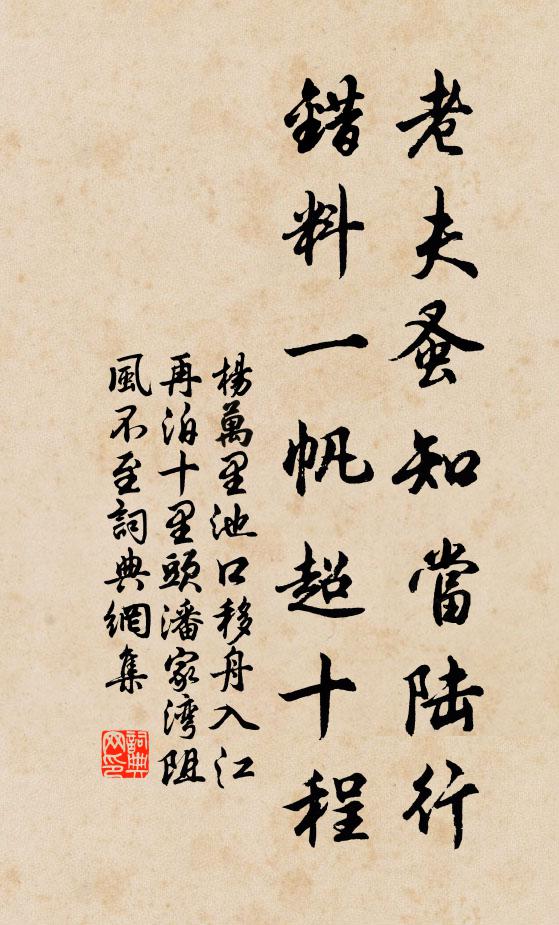 老夫蚤知當陆行
錯料一帆超十程
楊萬里池口移舟入江
再泊十里頭潘家湾阻
風不至詞典網集
詞典
网印